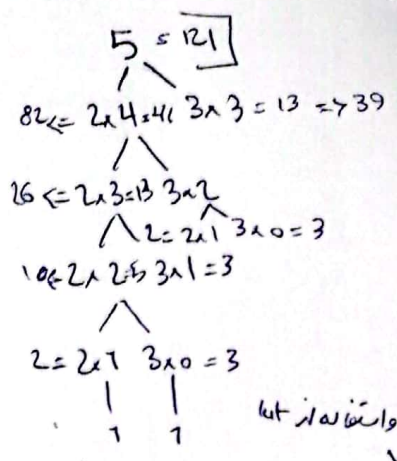 5 = 121
82 <= 2x4=41 3x3 = 13 => 39
26 <= 2x3=13 3x2
2= 2x1 3x0 = 3
10<= 2x2=5 3x1=3
2= 2x1 3x0 = 3
1 1